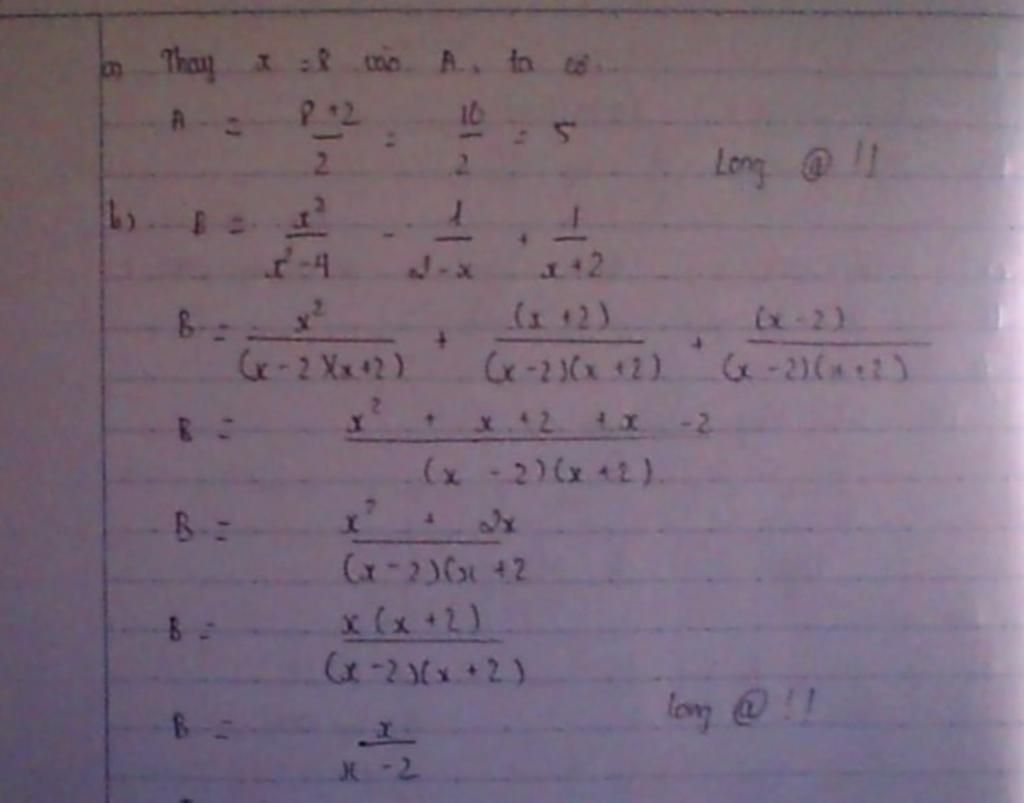 a) Thay x = 8 vào A, ta có.
A = (8 + 2)/2 = 10/2 = 5
Long @ !!
b) B = x²/(x² - 4) - 1/(2 - x) + 1/(x + 2)
B = x²/((x - 2)(x + 2)) + (x + 2)/((x - 2)(x + 2)) + (x - 2)/((x - 2)(x + 2))
B = (x² + x + 2 + x - 2)/((x - 2)(x + 2))
B = (x² + 2x)/((x - 2)(x + 2
B = x(x + 2)/((x - 2)(x + 2))
Long @ !!
B = x/(x - 2)